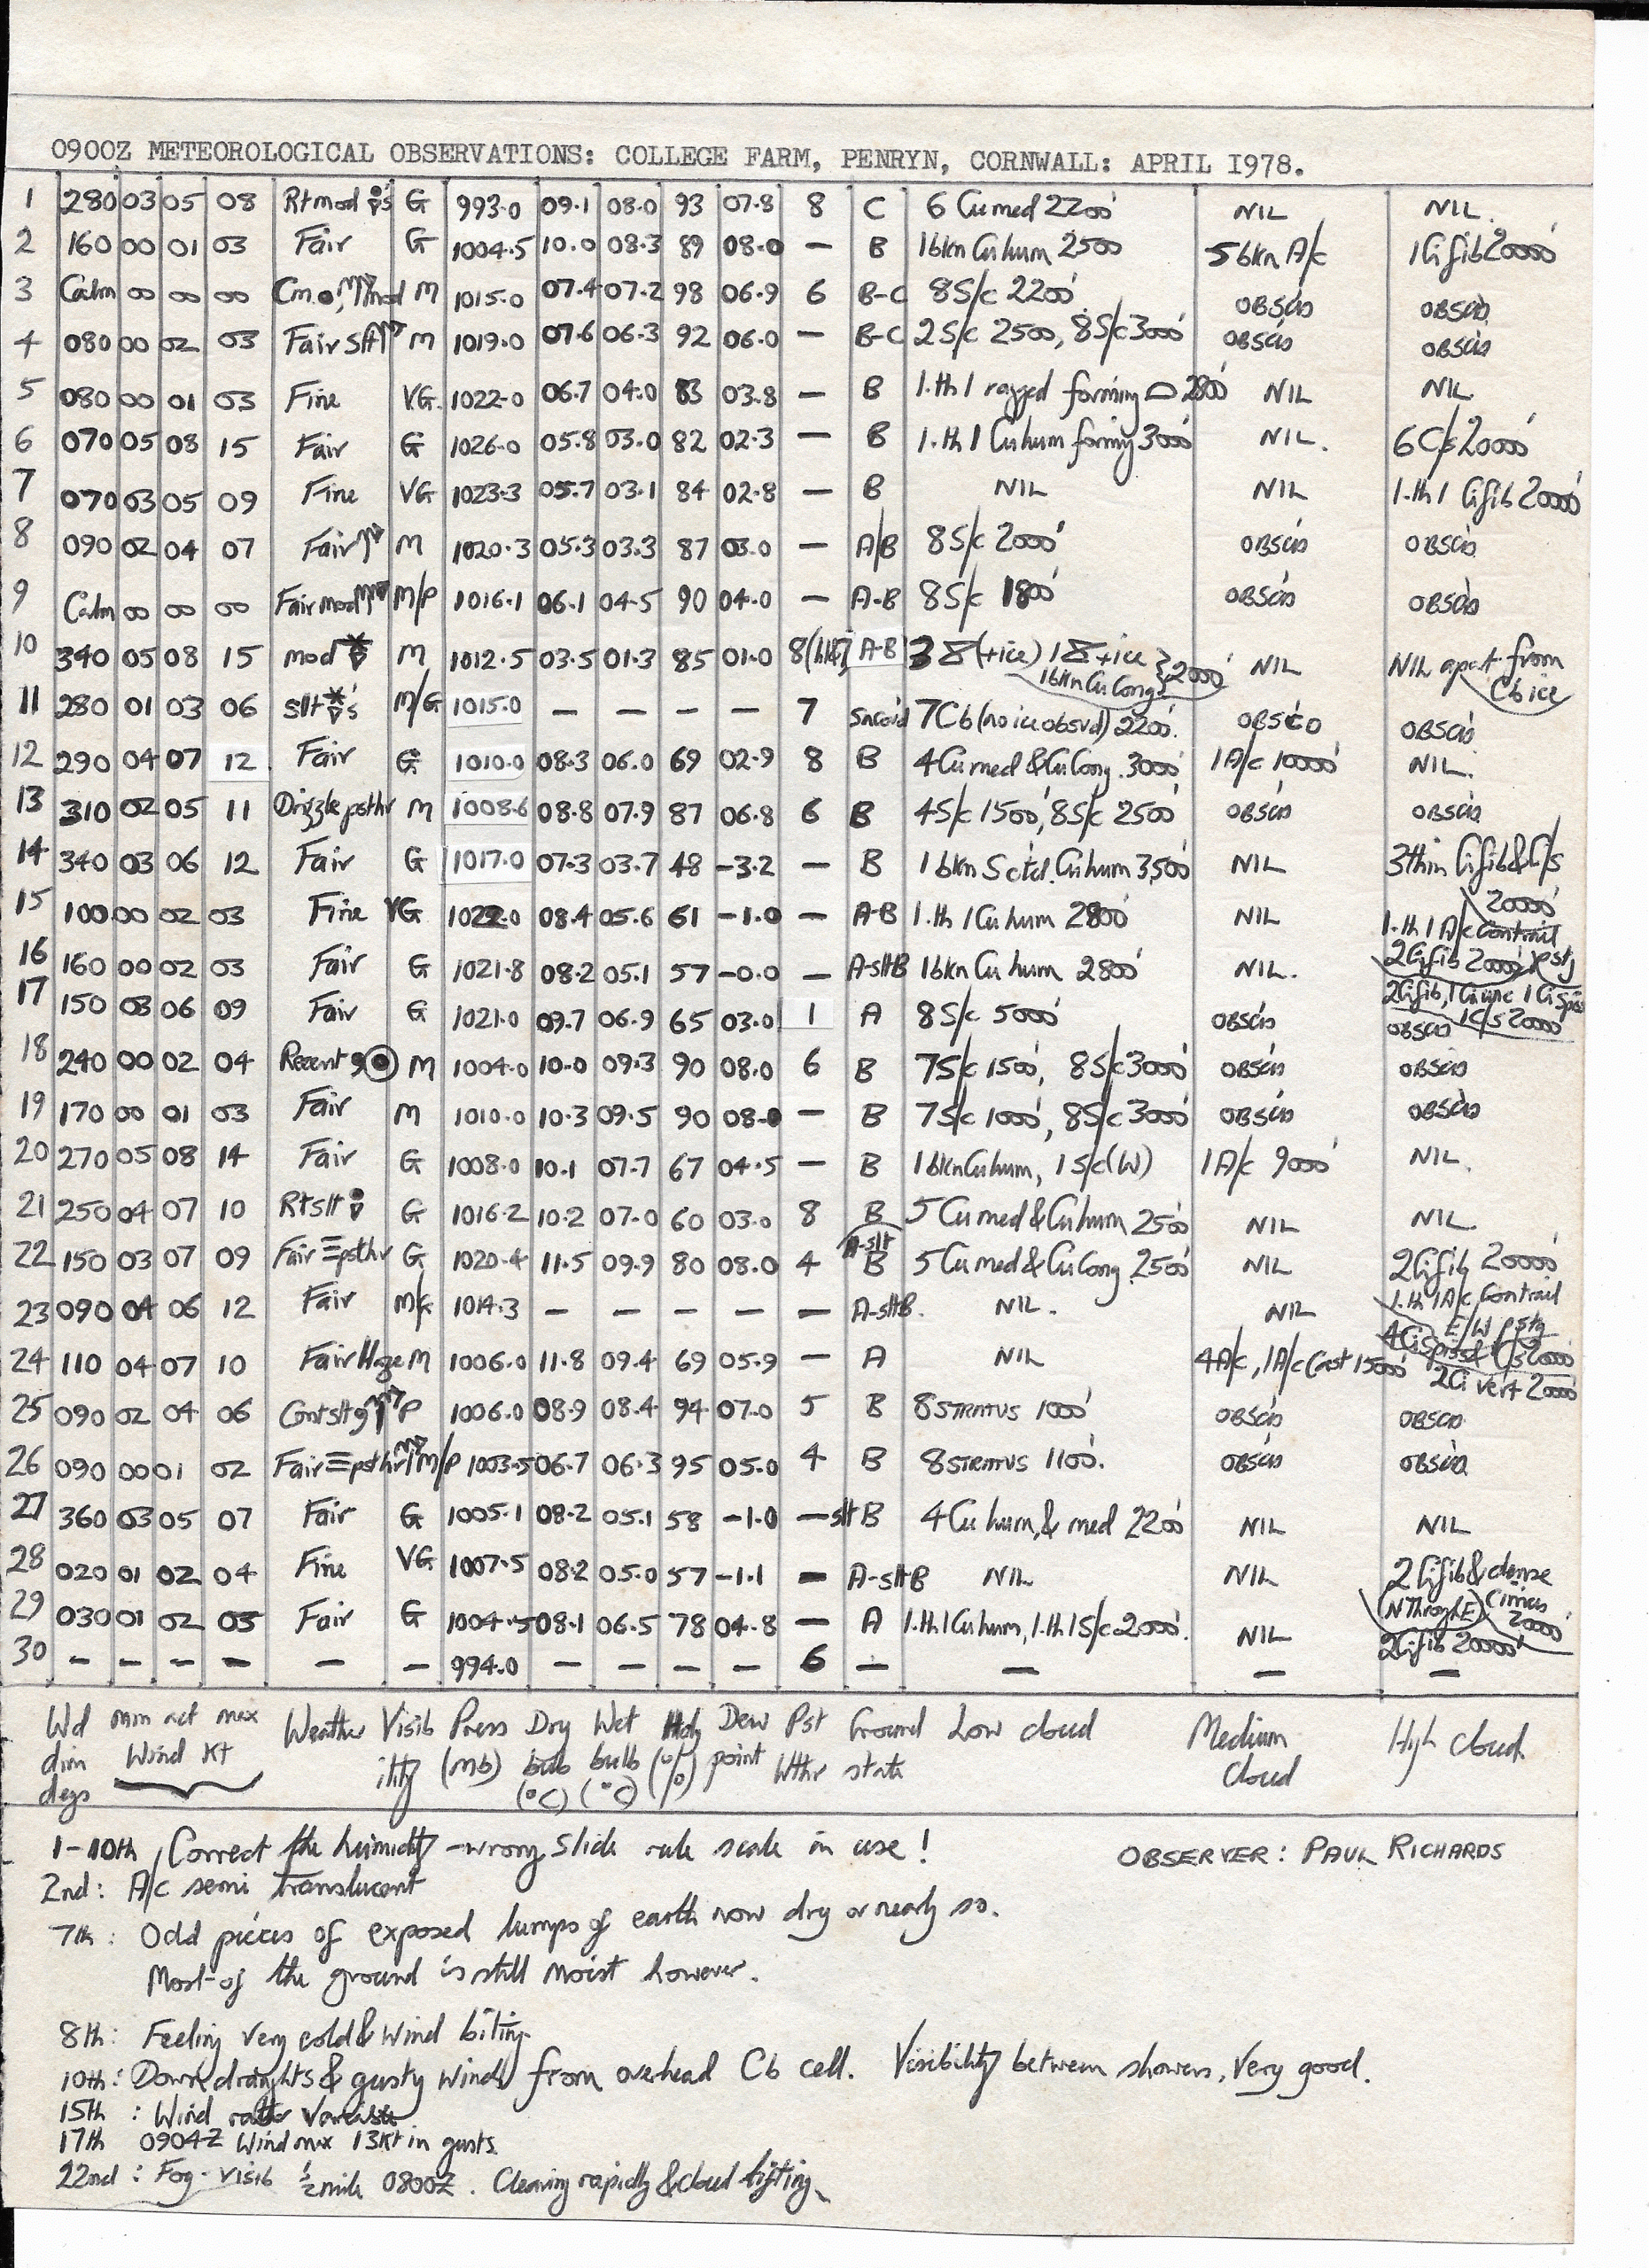 0900Z METEOROLOGICAL OBSERVATIONS: COLLEGE FARM, PENRYN, CORNWALL: APRIL 1978.
1 280 03 05 08 Rt mod G 993.0 09.1 08.0 93 07.8 8 C 6 Cu med 2200' NIL NIL.
2 160 00 01 03 Fair G 1004.5 10.0 08.3 89 08.0 — B 1 bkn Cu hum 2500 5 bkn A/c 1 Ci fib 20000'
3 Calm 00 00 00 M 1015.0 07.4 07.2 98 06.9 6 B-C 8 S/c 2200' OBSCD OBSCD
4 080 00 02 03 Fair slt M 1019.0 07.6 06.3 92 06.0 — B-C 2 S/c 2500, 8 S/c 3000' OBSCD OBSCD
5 080 00 01 03 Fine VG. 1022.0 06.7 04.0 83 03.8 — B 1.th 1 ragged forming 2800' NIL NIL
6 070 05 08 15 Fair G 1026.0 05.8 03.0 82 02.3 — B 1.th 1 Cu hum forming 3000' NIL. 6 C/s 20000'
7 070 03 05 09 Fine VG 1023.3 05.7 03.1 84 02.8 — B NIL NIL 1.th 1 Ci fib 20000'
8 090 02 04 07 Fair M 1020.3 05.3 03.3 87 03.0 — A/B 8 S/c 2000' OBSCD OBSCD
9 Calm 00 00 00 Fair mod M/P 1016.1 06.1 04.5 90 04.0 — A-B 8 S/c 1800' OBSCD OBSCD
10 340 05 08 15 mod M 1012.5 03.5 01.3 85 01.0 8 A-B 3 (+ice) 1 +ice 1 bkn Cu Cong } 2000' NIL NIL apart from Cb ice
11 280 01 03 06 slt 's M/G 1015.0 — — — — 7 7 Cb (no ice obsvd) 2200'. OBSCD OBSCD
12 290 04 07 12 Fair G 1010.0 08.3 06.0 69 02.9 8 B 4 Cu med & Cu Cong. 3000' 1 A/c 10000' NIL.
13 310 02 05 11 Drizzle psthr M 1008.6 08.8 07.9 87 06.8 6 B 4 S/c 1500', 8 S/c 2500' OBSCD OBSCD
14 340 03 06 12 Fair G 1017.0 07.3 03.7 48 -3.2 — B 1 bkn Sctd. Cu hum 3,500' NIL 3 thin Ci fib & C/s 20000'
15 100 00 02 03 Fine VG 1022.0 08.4 05.6 61 -1.0 — A-B 1.th 1 Cu hum 2800' NIL 1.th 1 A/c Contrail 2 Ci fib 20000'
16 160 00 02 03 Fair G 1021.8 08.2 05.1 57 -0.0 — A-slt B 1 bkn Cu hum 2800' NIL. 2 Ci fib, 1 Ci unc 1 Ci spiss 1 C/s 20000'
17 150 03 06 09 Fair G 1021.0 09.7 06.9 65 03.0 1 A 8 S/c 5000' OBSCD OBSCD
18 240 00 02 04 Recent M 1004.0 10.0 09.3 90 08.0 6 B 7 S/c 1500', 8 S/c 3000' OBSCD OBSCD
19 170 00 01 03 Fair M 1010.0 10.3 09.5 90 08.0 — B 7 S/c 1000', 8 S/c 3000' OBSCD OBSCD
20 270 05 08 14 Fair G 1008.0 10.1 07.7 67 04.5 — B 1 bkn Cu hum, 1 S/c (W) 1 A/c 9000' NIL.
21 250 04 07 10 Rt slt G 1016.2 10.2 07.0 60 03.0 8 B 5 Cu med & Cu hum 2500' NIL NIL.
22 150 03 07 09 Fair ≡ psthr G 1020.4 11.5 09.9 80 08.0 4 A-slt B 5 Cu med & Cu Cong. 2500' NIL 2 Ci fib 20000'
23 090 04 06 12 Fair M/G 1014.3 — — — — — A-slt B. NIL. NIL 1.th 1 A/c, Contrail E/W pstg 4 Ci spiss & C/s 20000'
24 110 04 07 10 Fair Haze M 1006.0 11.8 09.4 69 05.9 — A NIL 4 A/c, 1 A/c Cast 15000' 2 Ci vert 20000'
25 090 02 04 06 Cont slt P 1006.0 08.9 08.4 94 07.0 5 B 8 STRATUS 1000' OBSCD OBSCD
26 090 00 01 02 Fair ≡ psthr M/P 1003.5 06.7 06.3 95 05.0 4 B 8 STRATUS 1100'. OBSCD OBSCD
27 360 03 05 07 Fair G 1005.1 08.2 05.1 58 -1.0 — slt B 4 Cu hum, & med 2200' NIL NIL
28 020 01 02 04 Fine VG 1007.5 08.2 05.0 57 -1.1 — A-slt B NIL NIL 2 Ci fib & dense Cirrus (N Through E) 20000'
29 030 01 02 03 Fair G 1004.5 08.1 06.5 78 04.8 — A 1.th 1 Cu hum, 1.th 1 S/c 2000'. NIL 2 Ci fib 20000'
30 — — — — — — 994.0 — — — — 6 — — — —
Wd min act max Weather Visib Press Dry Wet Hdy Dew Pst Ground Low cloud Medium High cloud.
dirn Wind Kt ility (mb) bulb bulb (%) point Wthr state Cloud
degs (°C) (°C)
1-10th, Correct the humidity - wrong slide rule scale in use! OBSERVER: PAUL RICHARDS
2nd: A/c semi translucent
7th: Odd pieces of exposed lumps of earth now dry or nearly so.
Most of the ground is still moist however.
8th: Feeling very cold & wind biting.
10th: Down draughts & gusty winds from overhead Cb cell. Visibility between showers, Very good.
15th: Wind rather variable
17th 0904Z Wind max 13Kt in gusts.
22nd: Fog - visib ½ mile 0800Z. Clearing rapidly & cloud lifting.